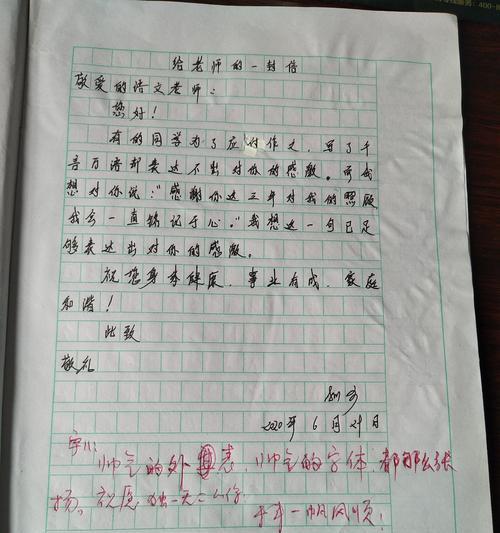 给老师的一封信
敬爱的语文老师:
您好!
有的同学为了应付作文,写了千
言万语却表达不出对你的感激。而我
想对你说:"感谢你这三年对我的照顾
我会一直铭记于心。"我想这一句已足
够表达出对你的感激。
祝您身体健康,事业有成,家庭
和谐!
此致
敬礼
2020年6月29日
帅气的外表,帅气的字体,都那么张
扬。祝愿独一无二的你
千年一帆风顺!